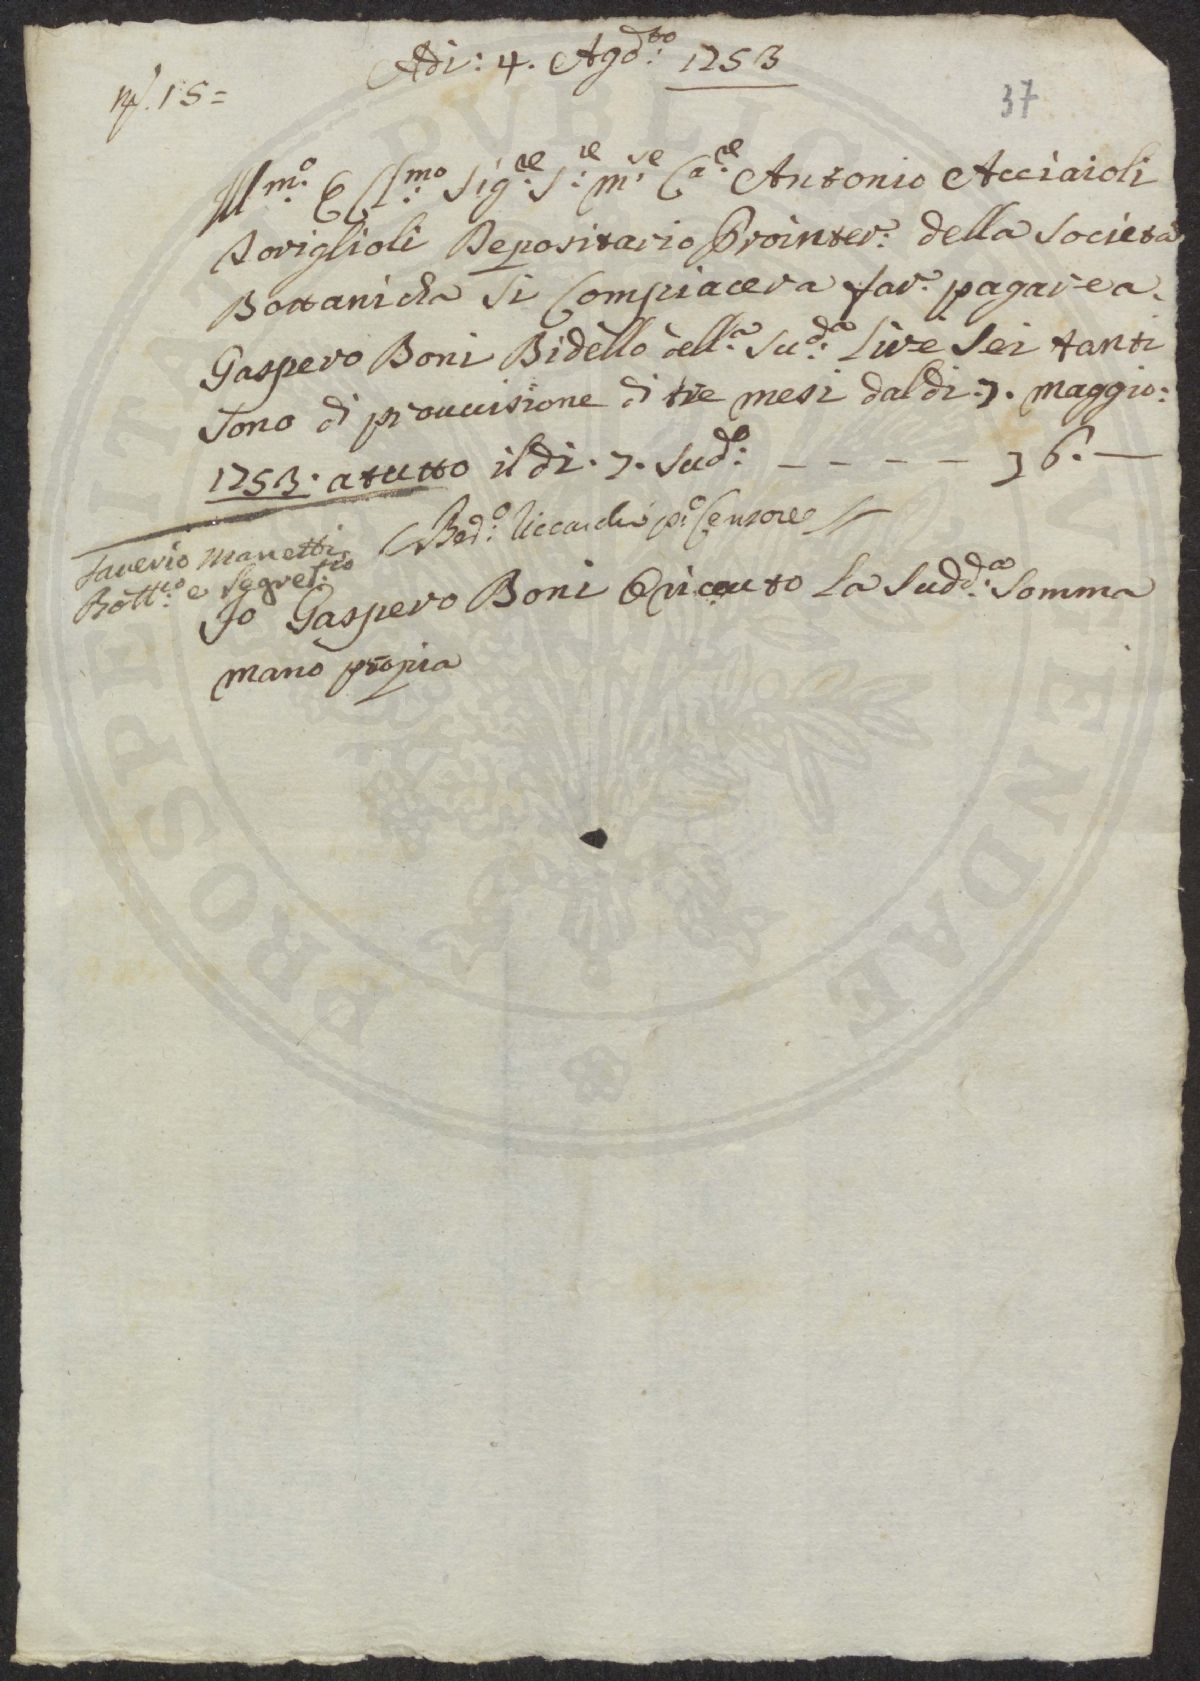 Adi: 4. Agd:to 1753
N.º 15=
37
Ill mº: e Cl:mo Sig:re S:re M:se Ca:re Antonio Acciaioli
Toriglioli Depositario Prointer: della Società
Bottanicha Si Compiacera far. pagare a
Gaspero Boni Bidello dell:a Sud:a Lire Sei tanti
Sono di prouuisione di tre mesi dal di .7. Maggio:
1753. a tutto il di .7. Sud:o - - - - - 3 6. —
Saverio Manetti
Bott:co e Segret:rio
Bed:o Riccardi p:o Censore
Io Gaspero Boni O riceuto La Sudd:a Somma
mano propia
PROSPERITATI PUBLICAE AUGENDAE